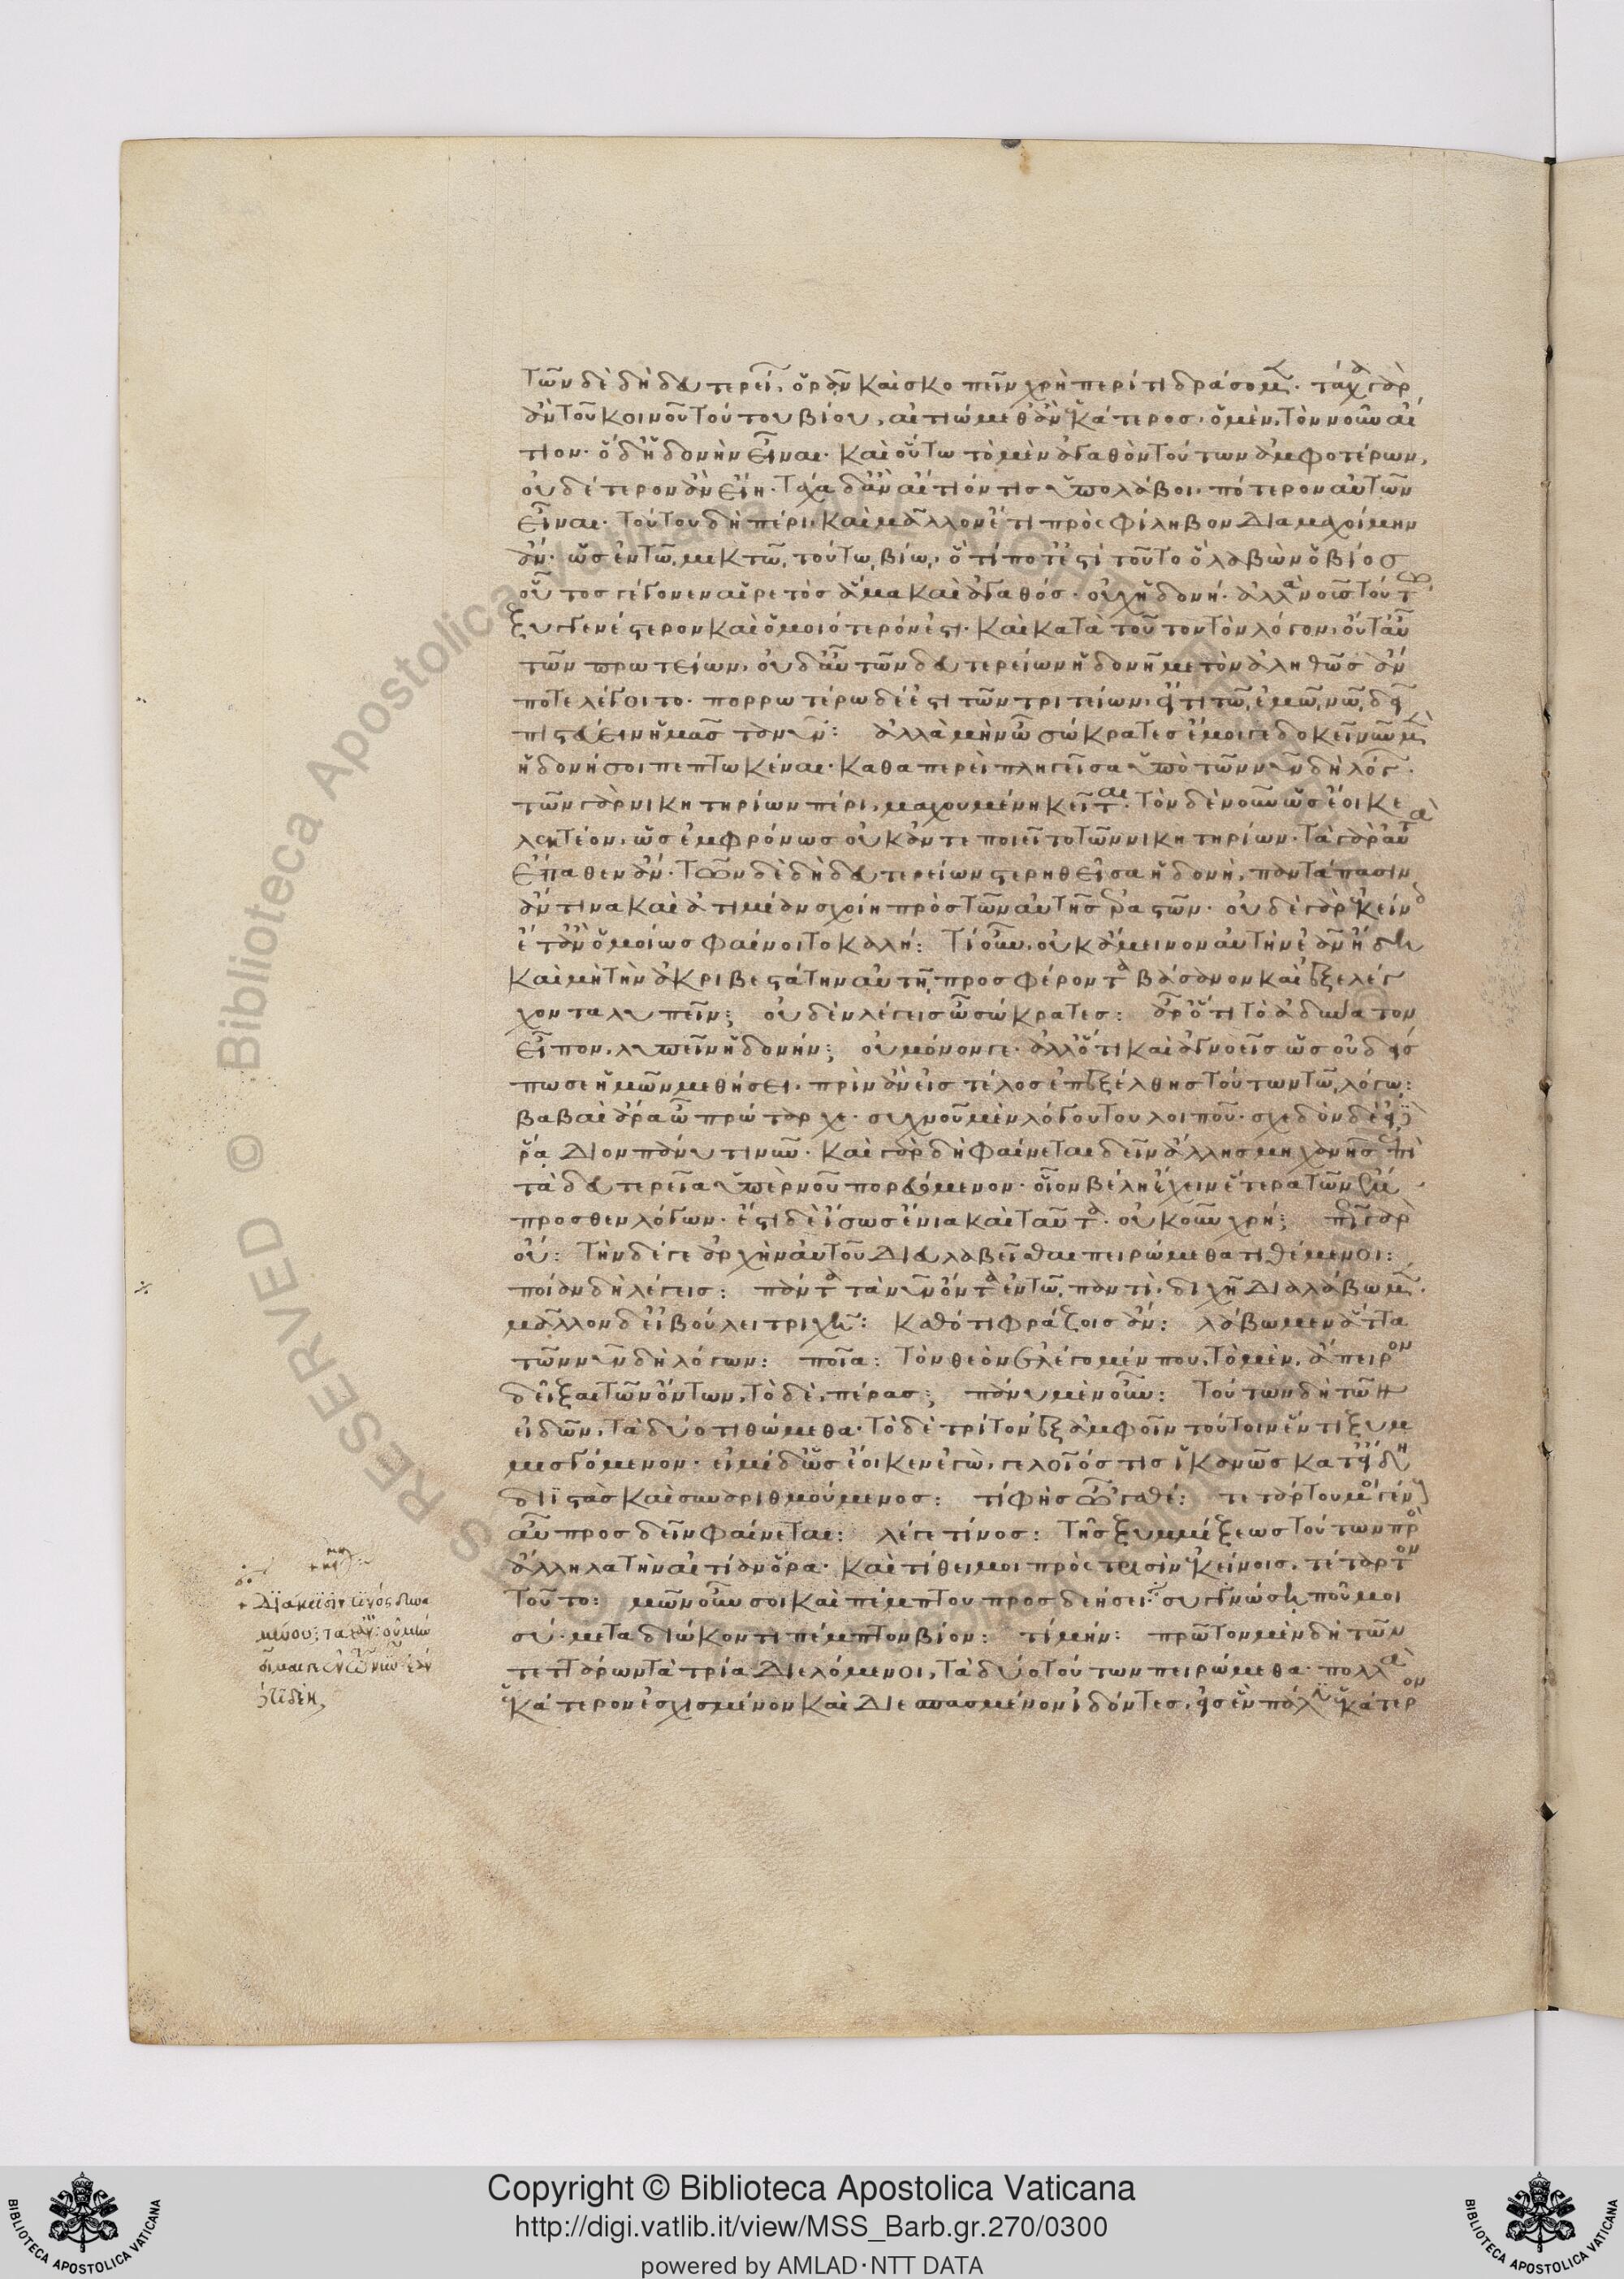 τῶν δὲ δὴ δευτερείων, ὁρᾶν καὶ σκοπεῖν χρὴ πέρι τί δράσομεν. τάχα γὰρ
ἂν τοῦ κοινοῦ τούτου βίου, αἰτιώμεθ' ἂν ἑκάτερος· ὁ μὲν, τὸν νοῦν αἴ
τιον· ὁ δ' ἡδονὴν εἶναι· καὶ οὕτω τὸ μὲν ἀγαθὸν τούτων ἀμφοτέρων,
οὐδέτερον ἂν εἴη. τάχα δ' ἂν αἴτιόν τις ὑπολάβοι πότερον αὐτῶν
εἶναι. τούτου δὴ πέρι, καὶ μᾶλλον ἔτι πρὸς φίληβον διαμαχοίμην
ἄν· ὡς ἐν τῷ μικτῷ τούτῳ βίῳ, ὅ τί ποτ' ἐστὶ τοῦτο ὃ λαβὼν ὁ βίος
οὗτος γέγονεν αἱρετὸς ἅμα καὶ ἀγαθός· οὐχ ἡδονή. ἀλλὰ νοῦς τούτῳ
ξυγγενέστερον καὶ ὁμοιότερόν ἐστι. καὶ κατὰ τοῦτον τὸν λόγον, οὔτ' αὖ
τῶν πρωτείων, οὐδ' αὖ τῶν δευτερείων ἡδονῇ μετὸν ἀληθῶς ἄν
ποτε λέγοιτο. πορρωτέρω δέ ἐστι τῶν τριτείων, εἴ τι τῷ ἐμῷ νῷ δεῖ
πιστεύειν ἡμᾶς τὸ νῦν: ἀλλὰ μὴν ὦ σώκρατες ἔμοιγε δοκεῖ νῦν μὲν
ἡδονή σοι πεπτωκέναι. καθαπερεὶ πληγεῖσα ὑπὸ τῶν νῦν δὴ λόγων.
τῶν γὰρ νικητηρίων πέρι, μαχομένη κεῖται. τὸν δὲ νοῦν ὡς ἔοικε
λεκτέον, ὡς ἐμφρόνως οὐκ ἀντεποιεῖτο τῶν νικητηρίων. τὰ γὰρ αὐτὰ
ἔπαθεν ἄν. τῶν δὲ δὴ δευτερείων στερηθεῖσα ἡδονή, παντάπασιν
ἄν τινα καὶ ἀτιμίαν σχοίη πρὸς τῶν αὐτῆς ἐραστῶν. οὐδὲ γὰρ ἐκείνοις
ἔτ' ἂν ὁμοίως φαίνοιτο καλή: τί οὖν, οὐκ ἄμεινον αὐτὴν ἐᾶν ἤδη
καὶ μὴ τὴν ἀκριβεστάτην αὐτῇ προσφέροντα βάσανον καὶ ἐξελέγ
χοντα λυπεῖν; οὐδὲν λέγεις ὦ σώκρατες: ἆρ' ὅτι τὸ ἀδύνατον
εἶπον, λυπεῖν ἡδονήν; οὐ μόνον γε. ἀλλ' ὅτι καὶ ἀγνοεῖς ὡς οὐδείς
πω σε ἡμῶν μεθήσει, πρὶν ἂν εἰς τέλος ἐπεξέλθῃς τούτων τῷ λόγῳ:
βαβαὶ ἄρα ὦ πρώταρχε. συχνοῦ μὲν λόγου τοῦ λοιποῦ. σχεδὸν δὲ οὐδὲ
ῥᾴδιον πάνυ τι νῦν. καὶ γὰρ δὴ φαίνεται δεῖν ἄλλης μηχανῆς ἐπὶ
τὰ δευτερεῖα ὑπὲρ νοῦ πορευόμενον. οἷον βέλη ἔχειν ἕτερα τῶν ἔμ
προσθεν λόγων. ἔστι δὲ ἴσως ἔνια καὶ ταῦτα. οὐκοῦν χρή; πῶς γὰρ
οὔ: τὴν δέ γε ἀρχὴν αὐτοῦ διευλαβεῖσθαι πειρώμεθα τιθέμενοι:
ποίαν δὴ λέγεις: πάντα τὰ νῦν ὄντα ἐν τῷ παντὶ, διχῇ διαλάβωμεν.
μᾶλλον δ' εἰ βούλει τριχῇ: καθότι φράζοις ἄν: λάβωμεν ἄττα
τῶν νῦν δὴ λόγων: ποῖα: τὸν θεὸν ἐλέγομέν που, τὸ μὲν, ἄπειρον
δεῖξαι τῶν ὄντων, τὸ δὲ, πέρας; πάνυ μὲν οὖν: τούτων δὴ τῶν
εἰδῶν, τὰ δύο τιθώμεθα. τὸ δὲ τρίτον ἐξ ἀμφοῖν τούτοιν ἕν τι ξυμ
μισγόμενον. εἰμὶ δ' ὡς ἔοικεν ἐγὼ, γελοῖός τις ἱκανῶς κατ' εἴδη
διϊστὰς καὶ συναριθμούμενος: τί φῂς ὦγαθέ: τετάρτου μοι γένους
αὖ προσδεῖν φαίνεται: λέγε τίνος: τῆς ξυμμίξεως τούτων πρὸς
ἄλληλα τὴν αἰτίαν ὅρα. καὶ τίθει μοι πρὸς τρισὶν ἐκείνοις, τέταρτον
τοῦτο: μῶν οὖν σοι καὶ πέμπτου προσδεήσει: συγγνώσῃ που μοι
σύ. μεταδιώκοντι πέμπτον βίον: τί μήν: πρῶτον μὲν δὴ τῶν
τεττάρων τὰ τρία διελόμενοι, τὰ δύο τούτων πειρώμεθα. πολλὰ
ἑκάτερον ἐσχισμένον καὶ διεσπασμένον ἰδόντες, εἰς ἓν πάλιν ἑκάτερον
Διάκρισίν τινος δυνα
μένου;
Copyright © Biblioteca Apostolica Vaticana
http://digi.vatlib.it/view/MSS_Barb.gr.270/0300
powered by AMLAD·NTT DATA
BIBLIOTECA APOSTOLICA VATICANA
BIBLIOTECA APOSTOLICA VATICANA